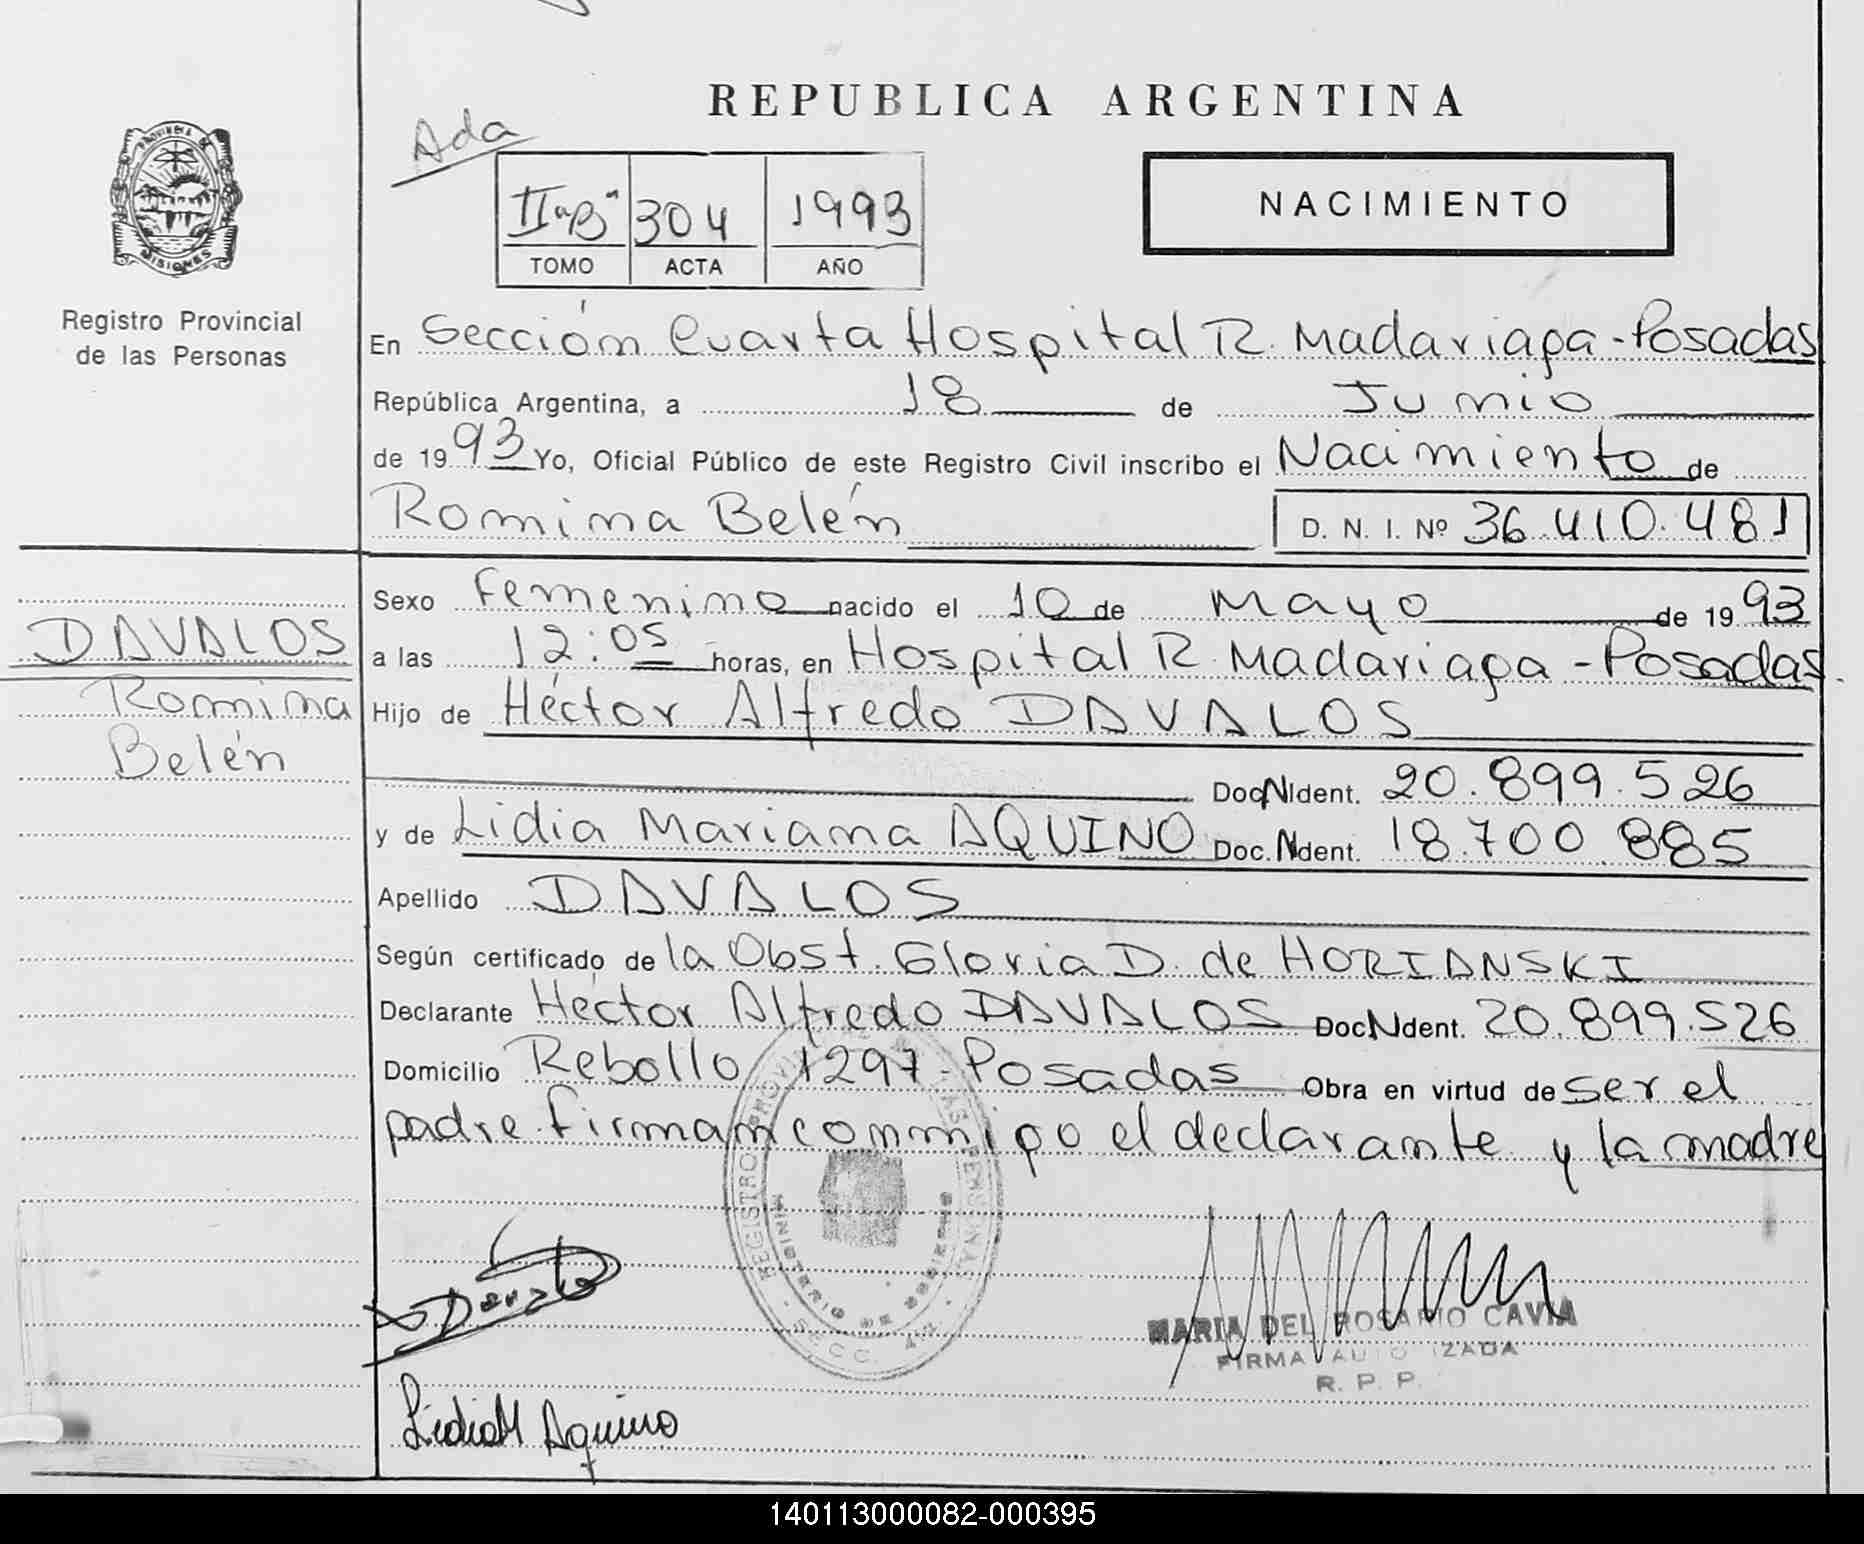 REPUBLICA ARGENTINA
Ada
PROVINCIA DE
MISIONES
Registro Provincial
de las Personas
II "B" 304 1993
TOMO ACTA AÑO
NACIMIENTO
En Sección Cuarta Hospital R. Madariaga - Posadas
República Argentina, a 18 de Junio
de 1993 Yo, Oficial Público de este Registro Civil inscribo el Nacimiento de
Romina Belén D. N. I. Nº 36.410.481
Sexo Femenino nacido el 10 de Mayo de 1993
a las 12:05 horas, en Hospital R. Madariaga - Posadas.
Hijo de Héctor Alfredo DAVALOS
Doc. N Ident. 20.899.526
y de Lidia Mariana AQUINO Doc. N Ident. 18.700.885
Apellido DAVALOS
Según certificado de la Obst. Gloria D. de HORIANSKI
Declarante Héctor Alfredo DAVALOS Doc. N Ident. 20.899.526
Domicilio Rebollo 1297 - Posadas Obra en virtud de ser el
padre. firman conmigo el declarante y la madre
DAVALOS
Romina
Belén
REGISTRO PROVINCIAL DE LAS PERSONAS
MINISTERIO DE GOBIERNO
SECC. 4ta.
Davalo
MARIA DEL ROSARIO CAVIA
FIRMA AUTORIZADA
R. P. P.
Lidia M Aquino
140113000082-000395